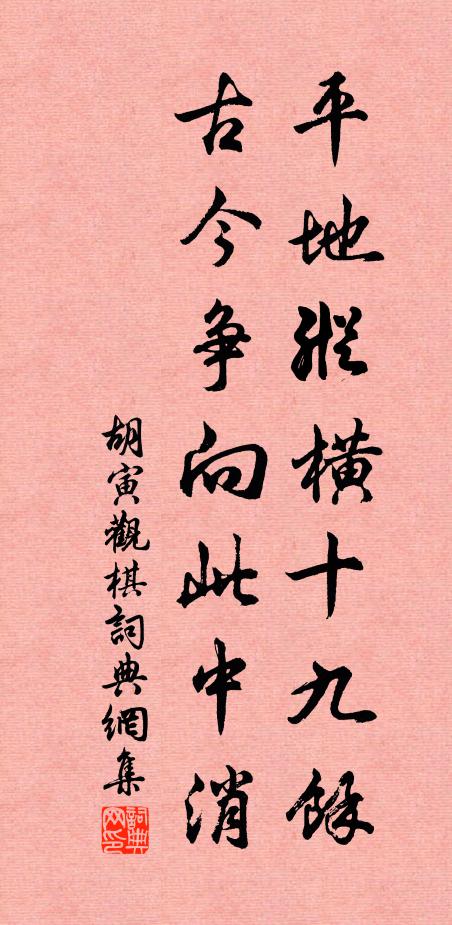 平地縱橫十九餘
古今争向此中消
胡寅觀棋詞典網集
詞典网印